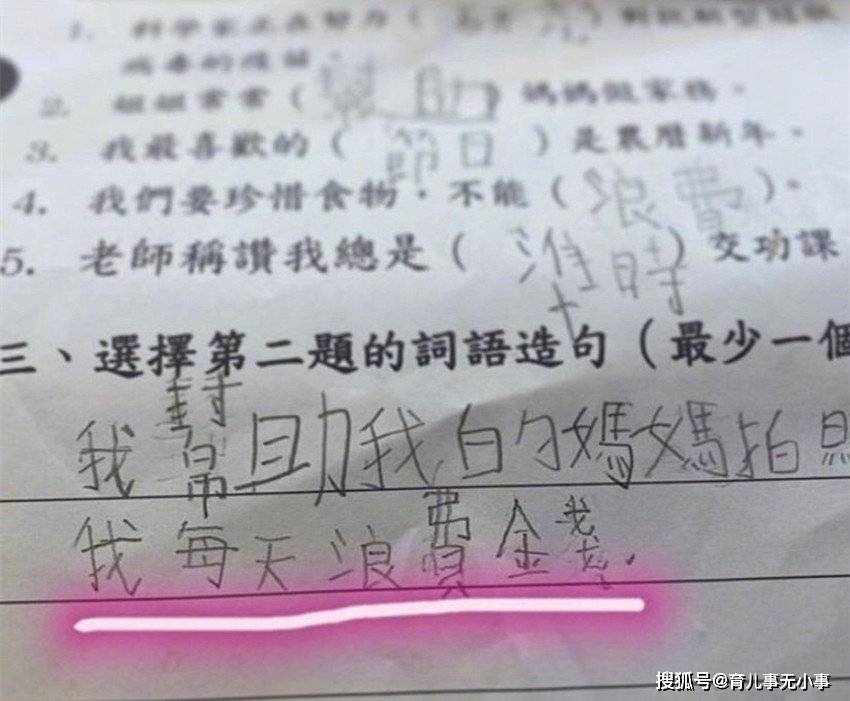 1. 科學家正在努力（研究）對抗新型冠狀
病毒的疫苗。
2. 姐姐常常（幫助）媽媽做家務。
3. 我最喜歡的（節日）是農曆新年。
4. 我們要珍惜食物，不能（浪費）。
5. 老師稱讚我總是（準時）交功課
三、選擇第二題的詞語造句（最少一個
我幫助我的媽媽拍照
我每天浪費金錢.
搜狐号@育儿事无小事